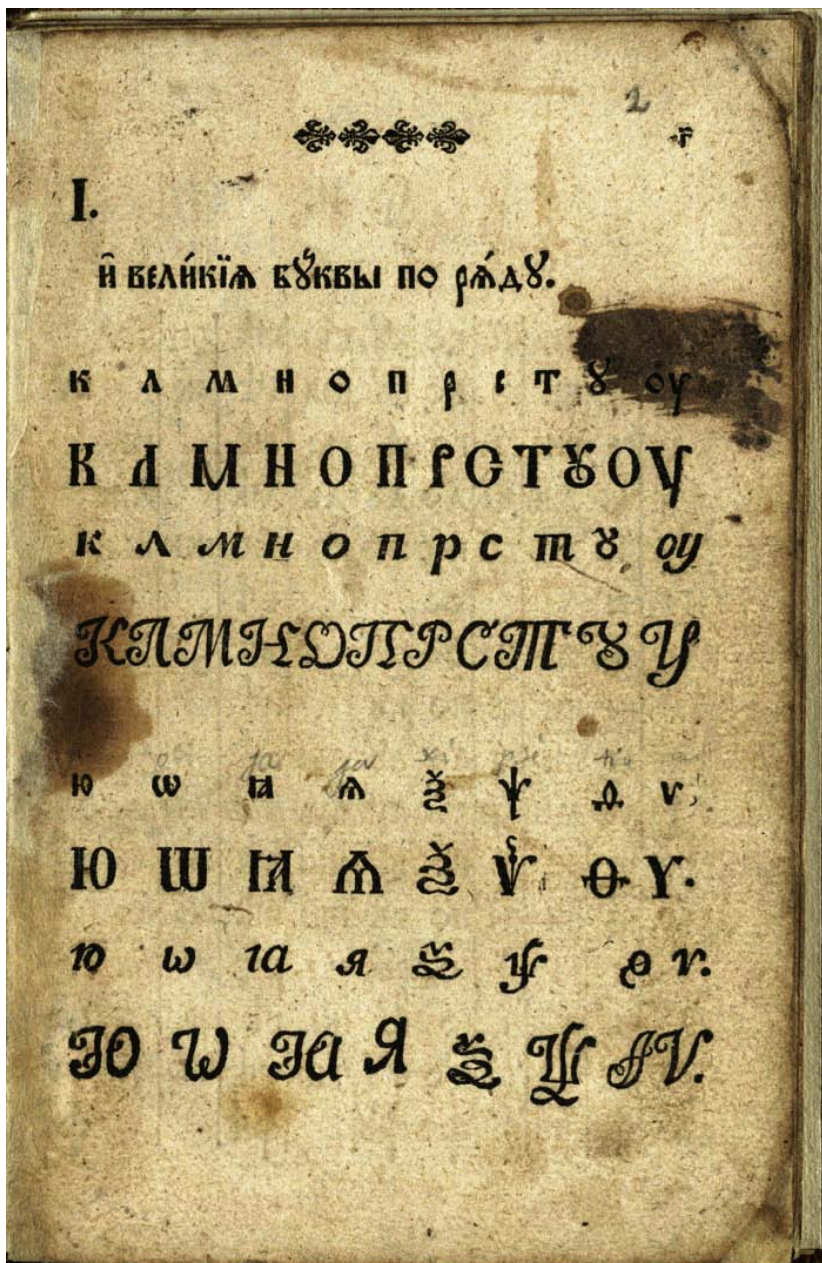 2 г҃
І.
и҆̑ вели́кїѧ бꙋ́квы по рѧ́дꙋ.
к л м н о п р с т ꙋ оу
К Л М Н О П Р С Т Ꙋ ОУ
к л м н о п р с т ꙋ оу
К Л М Н О П Р С Т Ꙋ У
ю ѡ ꙗ ѧ ѯ ѱ ѳ ѵ.
Ю Ѡ Ꙗ Ѧ Ѯ Ѱ Ѳ Ѵ.
ю ѡ ıa я ѯ ѱ ѳ ѵ.
Ю Ѡ ІА Я Ѯ Ѱ Ѳ Ѵ.